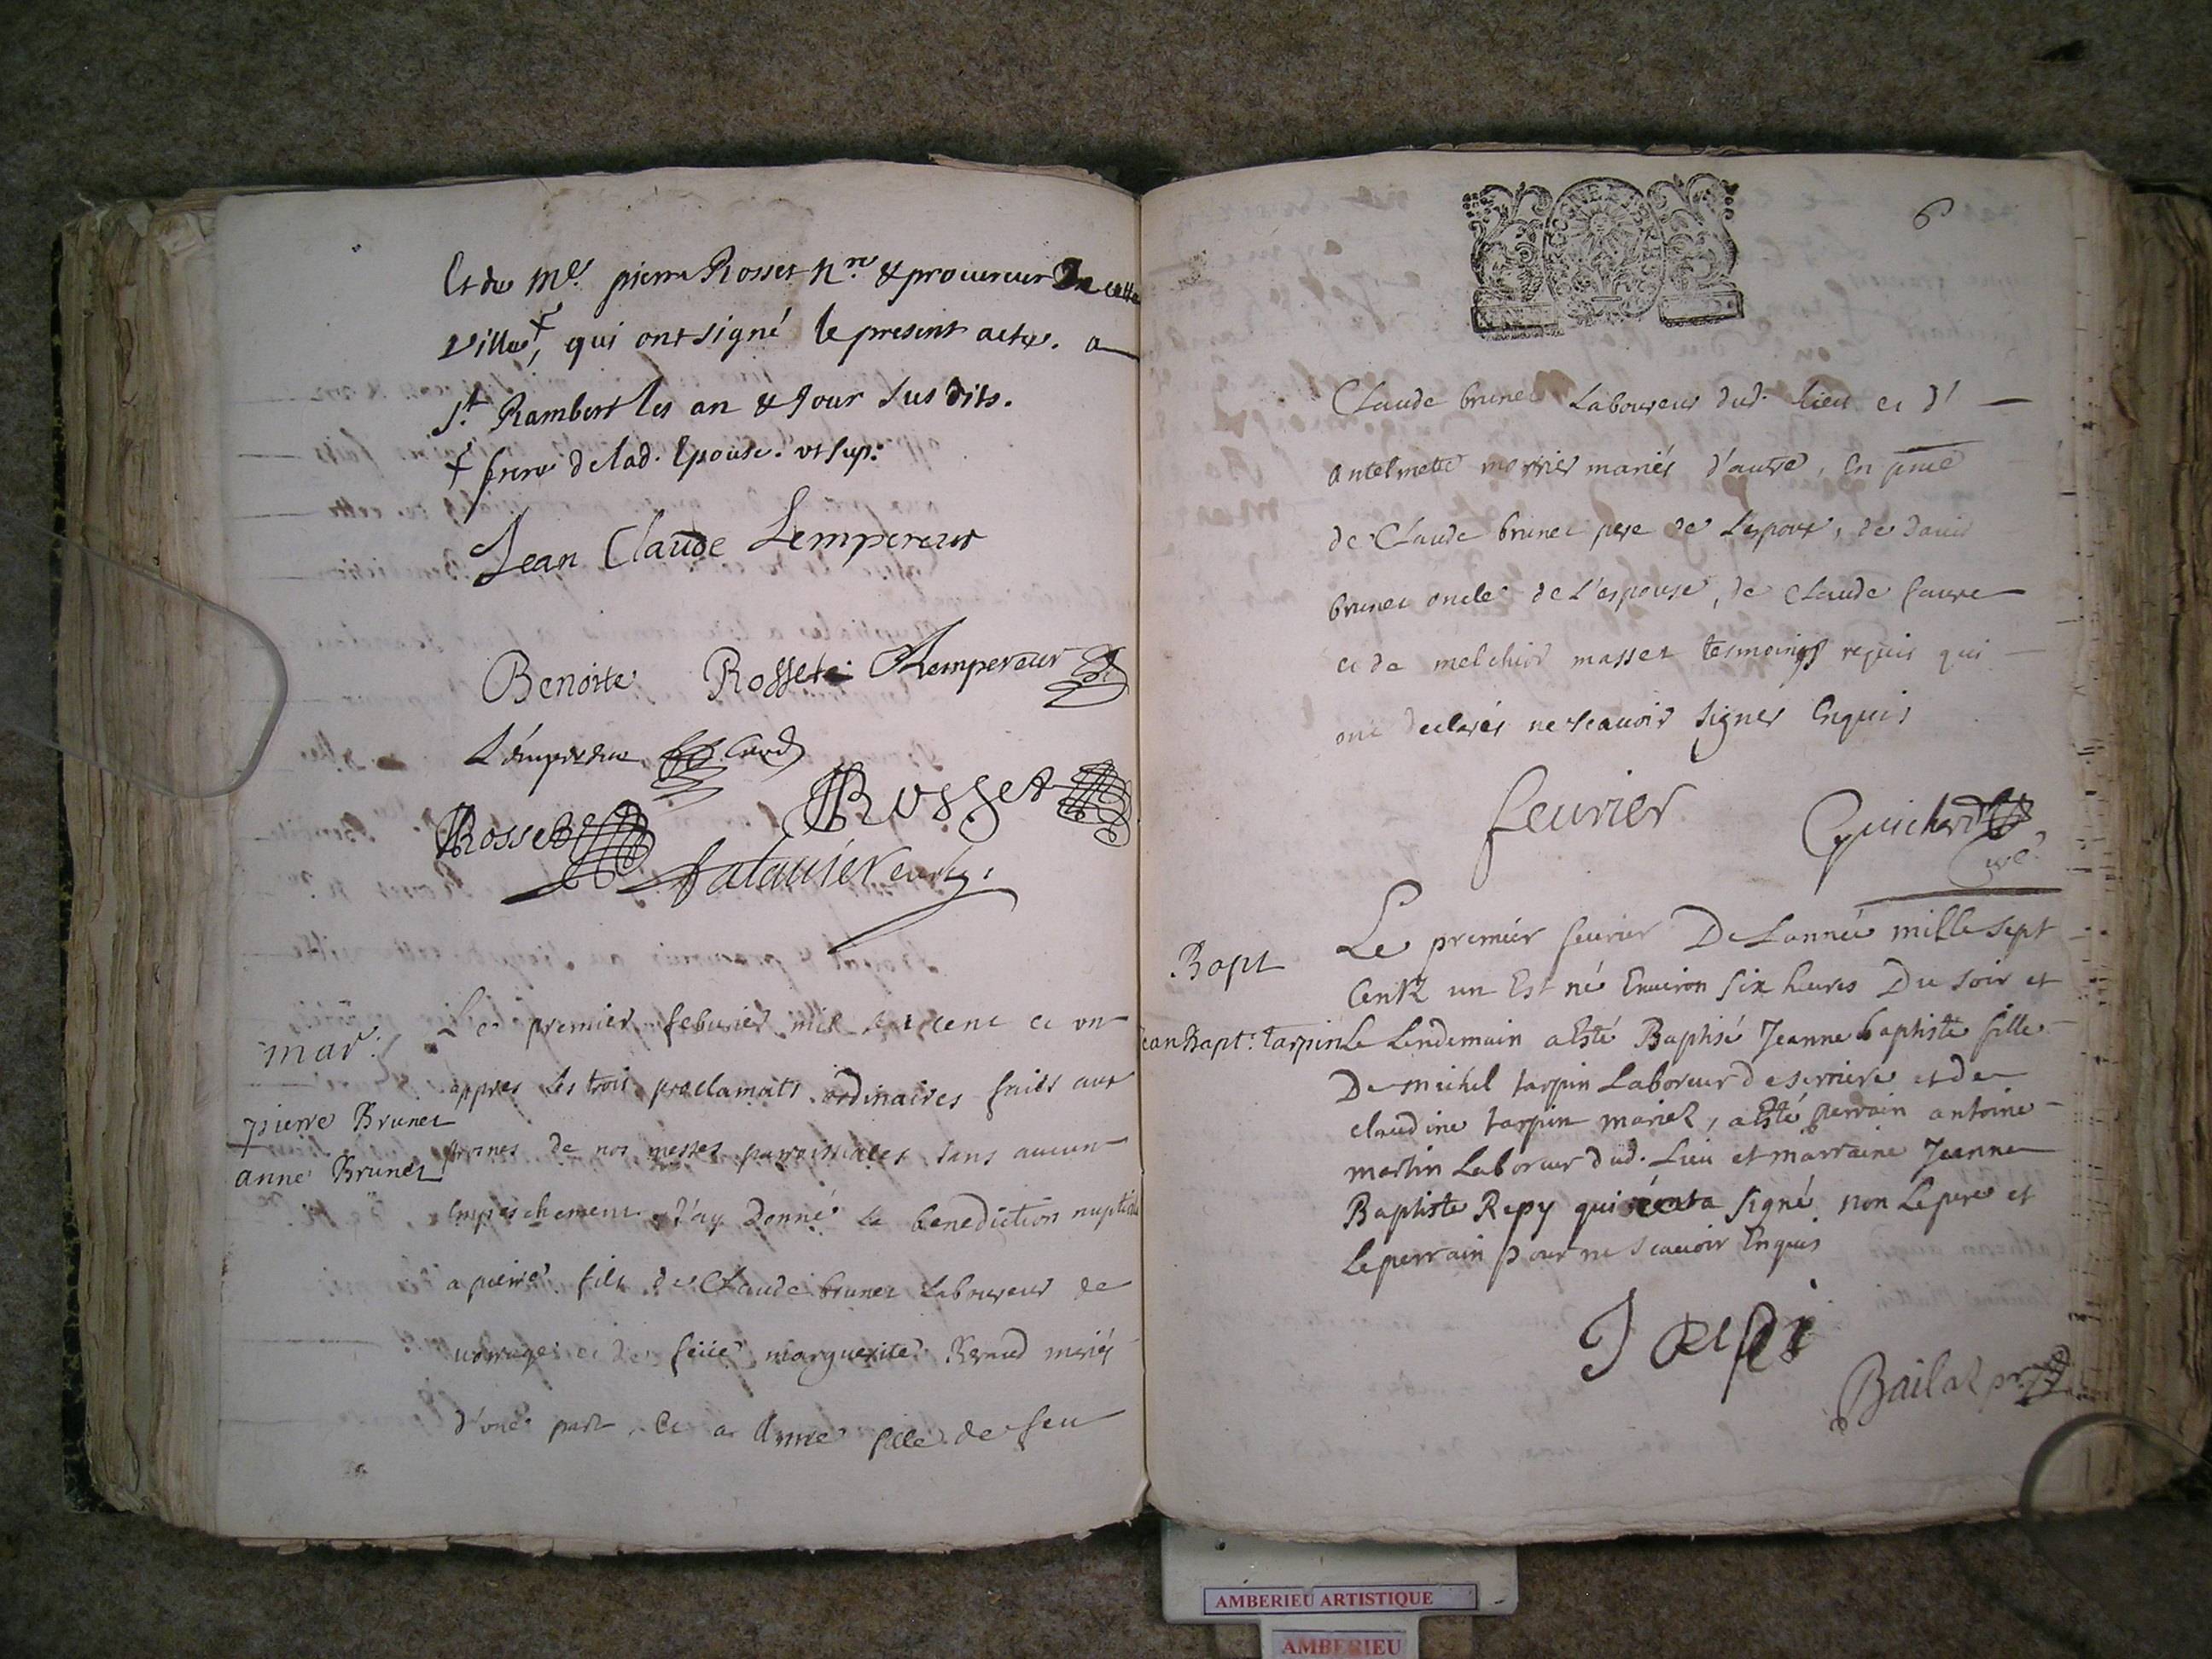 Et de Me. pierre Rosset nre. & procureur De cette
Ville +, qui ont signé le present acte. a
St. Rambert les an & Jour Susdits.
+ frere de lad. Epouse. ut sup:
Jean Claude Lempereur
Benoite Rossete Lempereur
Lempereur
Rosset Rosset
mar:
pierre Brunet
anne Brunet
Le premier feburier mil sept cent et un
appres les trois proclamats ordinaires faits aux
prosnes de nos messes parroissiales, sans aucun
Empeschement J'ay Donné la benediction nuptiale
a pierre fils de Claude brunet Laboureur de
et de feüe marguerite mariés
d'une part, Et a Anne fille de feu
6
Claude brunet Laboureur dud. lieu et d'
antelmette mariés d'autre, En pnce
de Claude brunet pere de L'espoux, de david
brunet oncle de L'espouse, de Claude favre
et de melchior masset tesmoings requis qui
ont declarés ne scauoir signer Enquis
feurier Guichard
Curé
Bapt
Jean Bapt: tarpin
Le premier feurier De Lannée mille sept
Centz un Est né Enuiron six heures Du soir et
Le Lendemain a Esté Baptisé Jeanne baptiste fille
De michel tarpin Laboreur de serriere et de
claudine tarpin mariez, a Esté perrain antoine
martin Laboreur dud. Lieu et marraine Jeanne
Baptiste Repy qui a signé non Le pere et
Le perrain pour ne scauoir Enquis
Bailat
AMBERIEU ARTISTIQUE
AMBERIEU